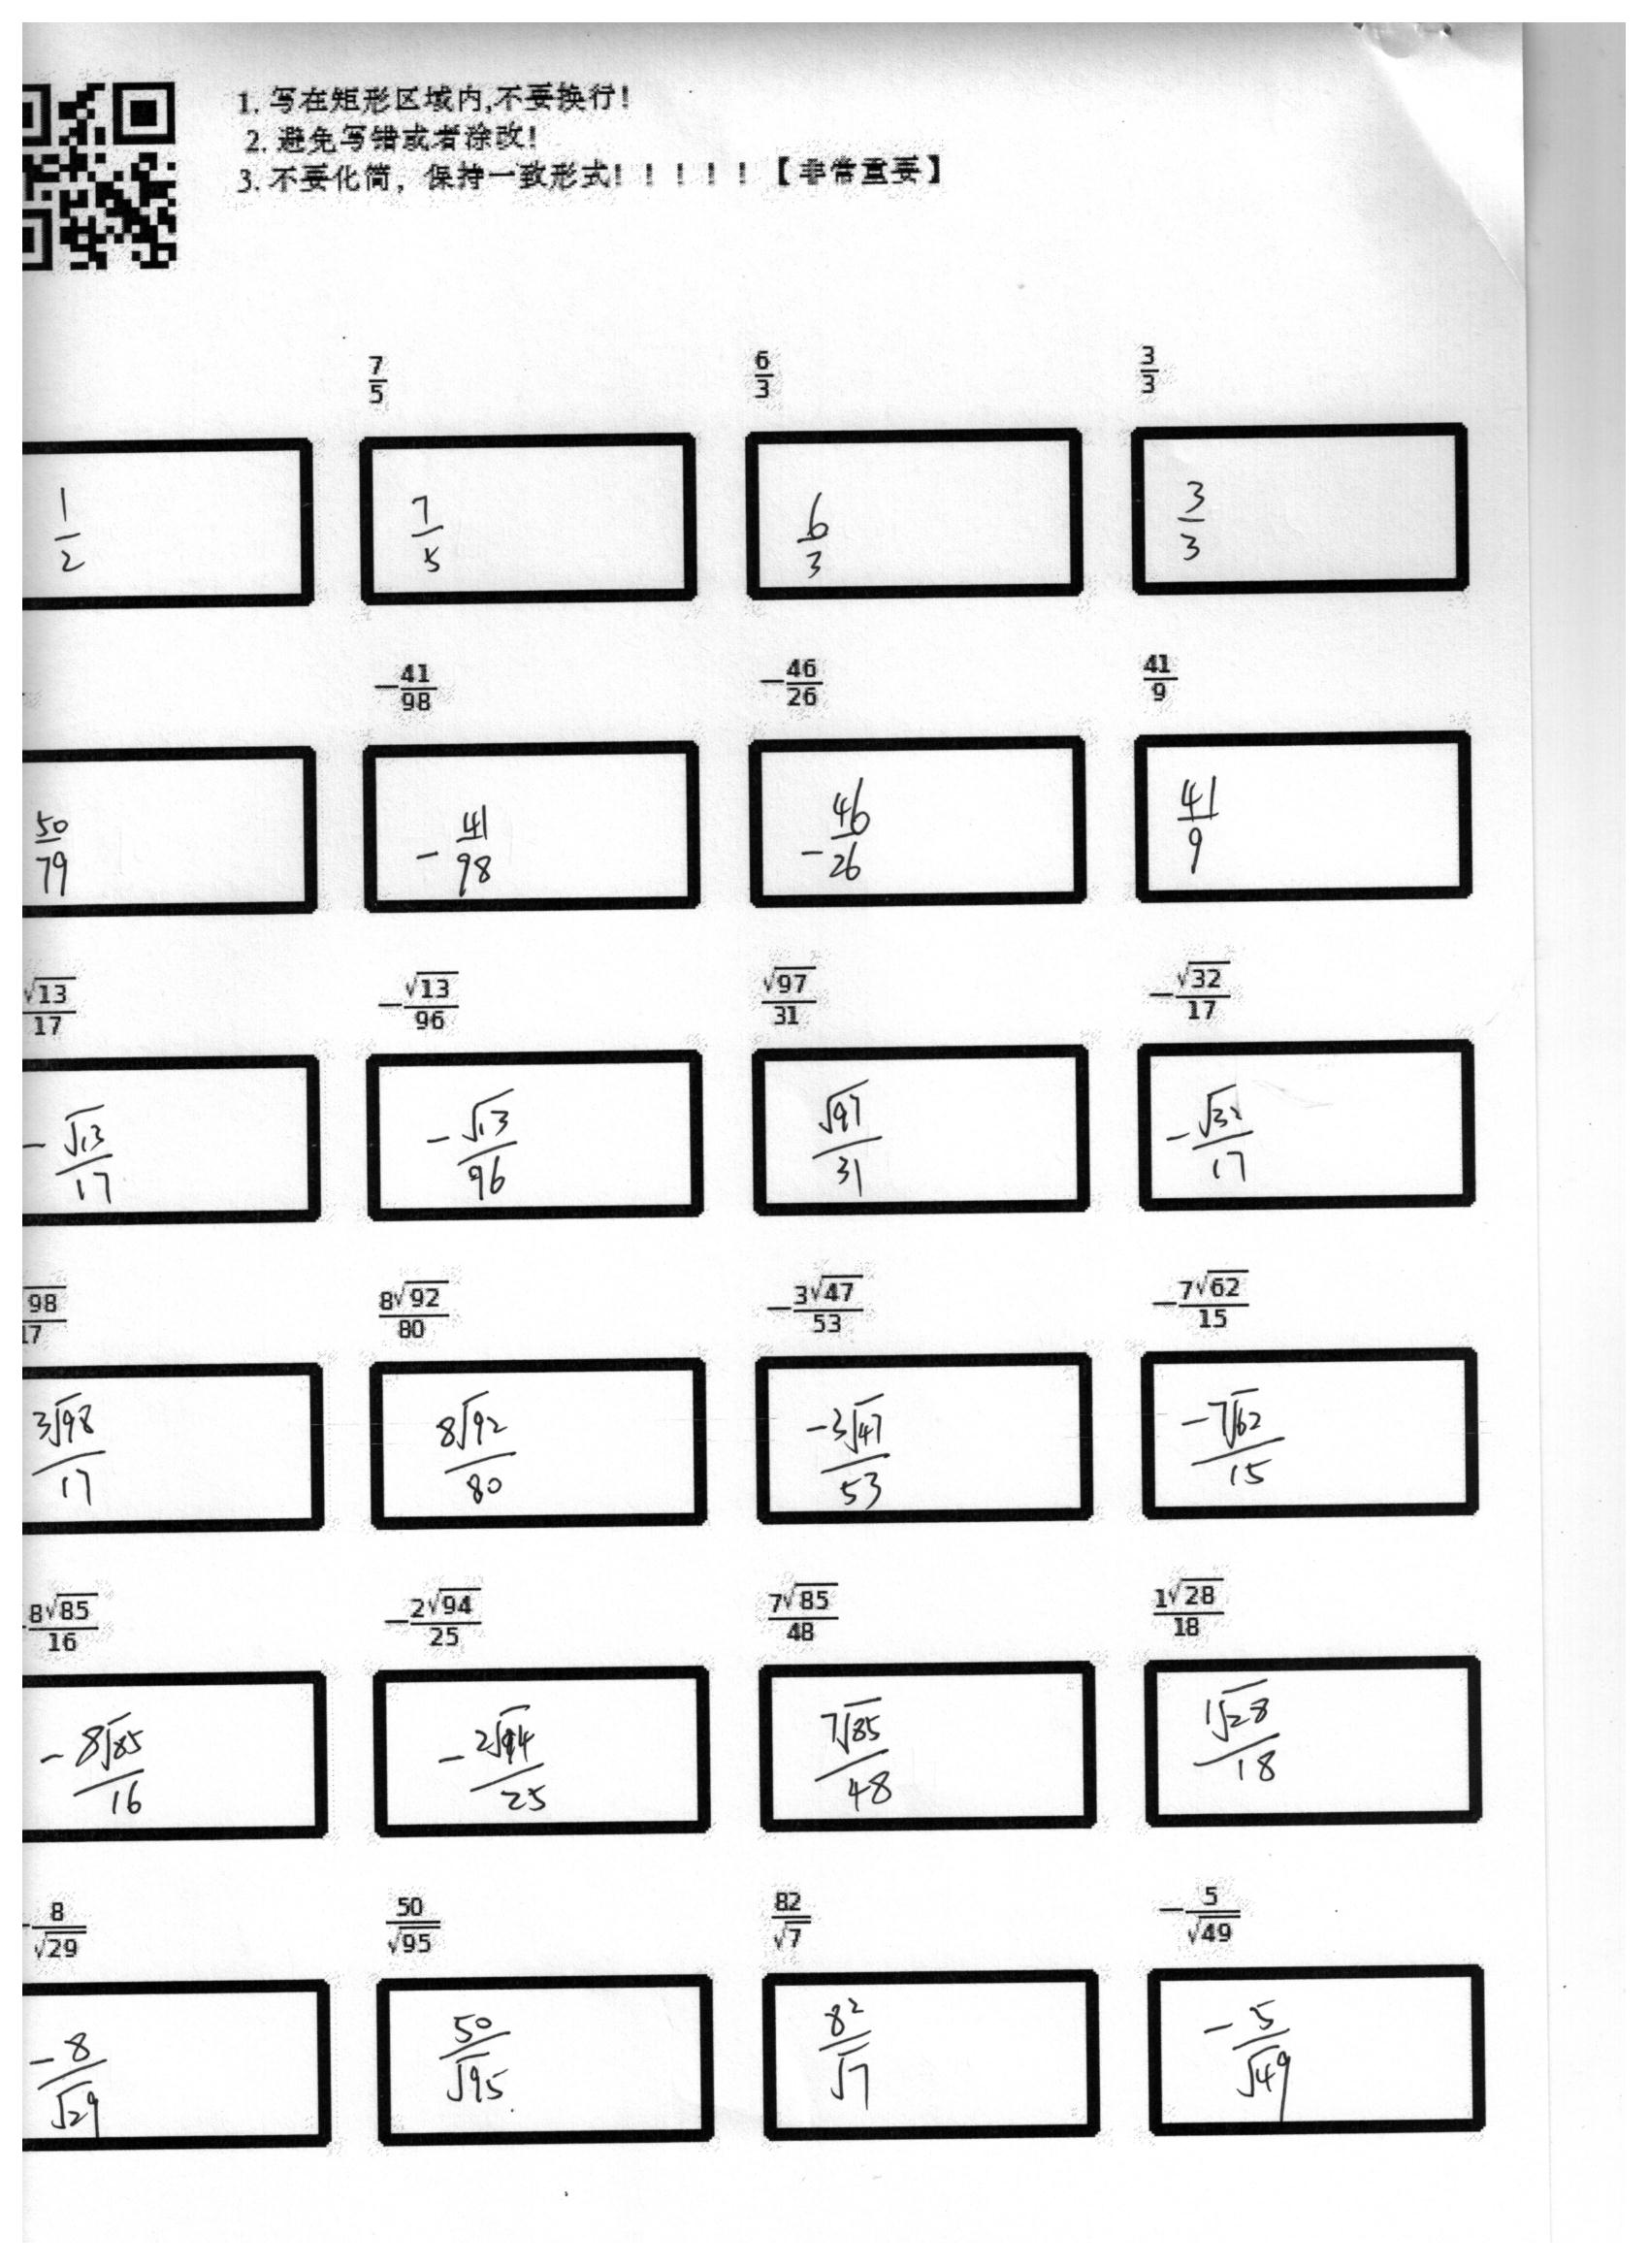 1. 写在矩形区域内,不要换行!
2. 避免写错或者涂改!
3. 不要化简，保持一致形式！！！！！【非常重要】
7/5 6/3 3/3
1/2 7/5 6/3 3/3
-41/98 -46/26 41/9
50/79 -41/98 -46/26 41/9
√13/17 -√13/96 √97/31 -√32/17
-√13/17 -√13/96 √97/31 -√32/17
98/17 8√92/80 -3√47/53 -7√62/15
3√98/17 8√92/80 -3√47/53 -7√62/15
-8√85/16 -2√94/25 7√85/48 1√28/18
-8√85/16 -2√94/25 7√85/48 1√28/18
-8/√29 50/√95 82/√7 -5/√49
-8/√29 50/√95 82/√7 -5/√49